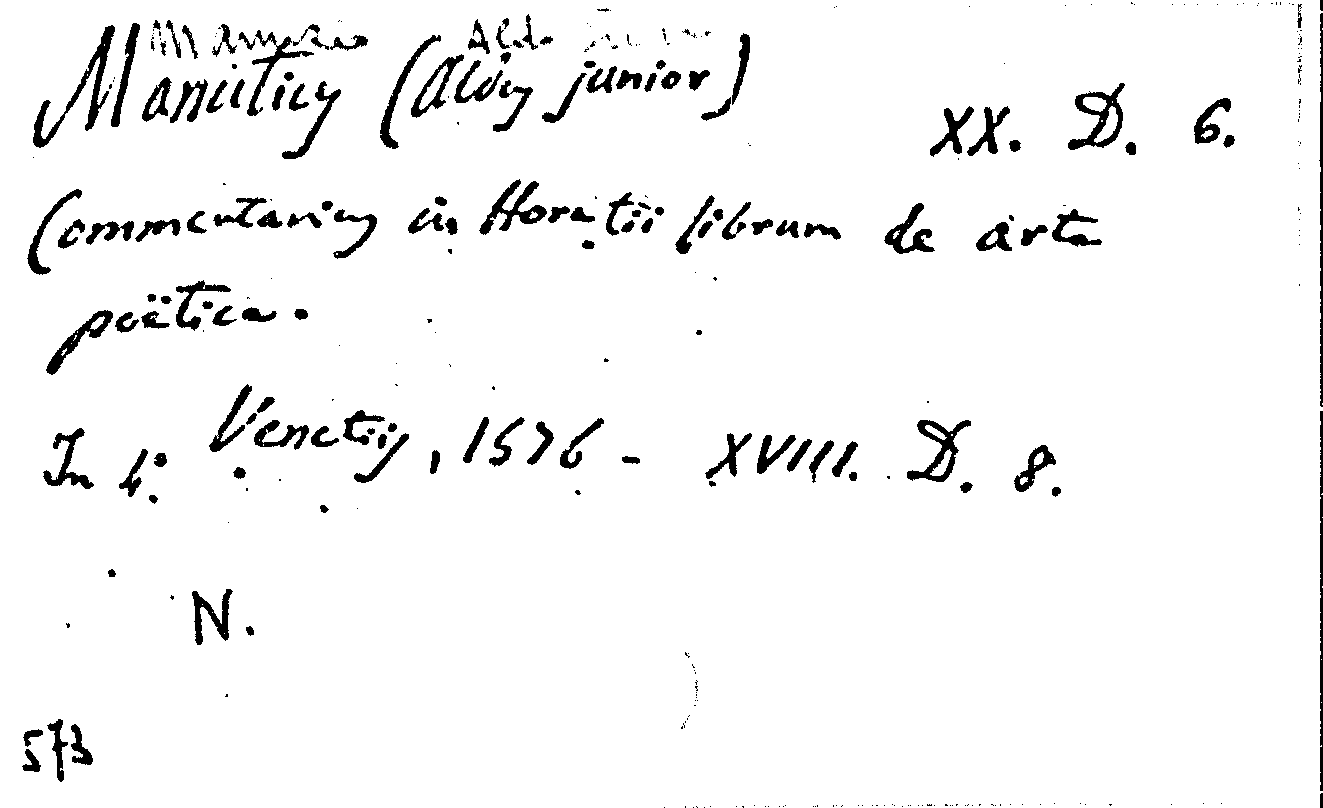 Manuzio Aldo
Manutius (Aldus junior)
XX. D. 6.
Commentarius in Horatii librum de arte
poëtica.
In 4.° Venetiis, 1576 - XVIII. D. 8.
N.
573